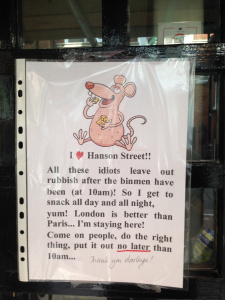 I ♥ Hanson Street!!
All these idiots leave out
rubbish after the binmen have
been (at 10am)! So I get to
snack all day and all night,
yum! London is better than
Paris... I'm staying here!
Come on people, do the right
thing, put it out no later than
10am... Thank you darlings!